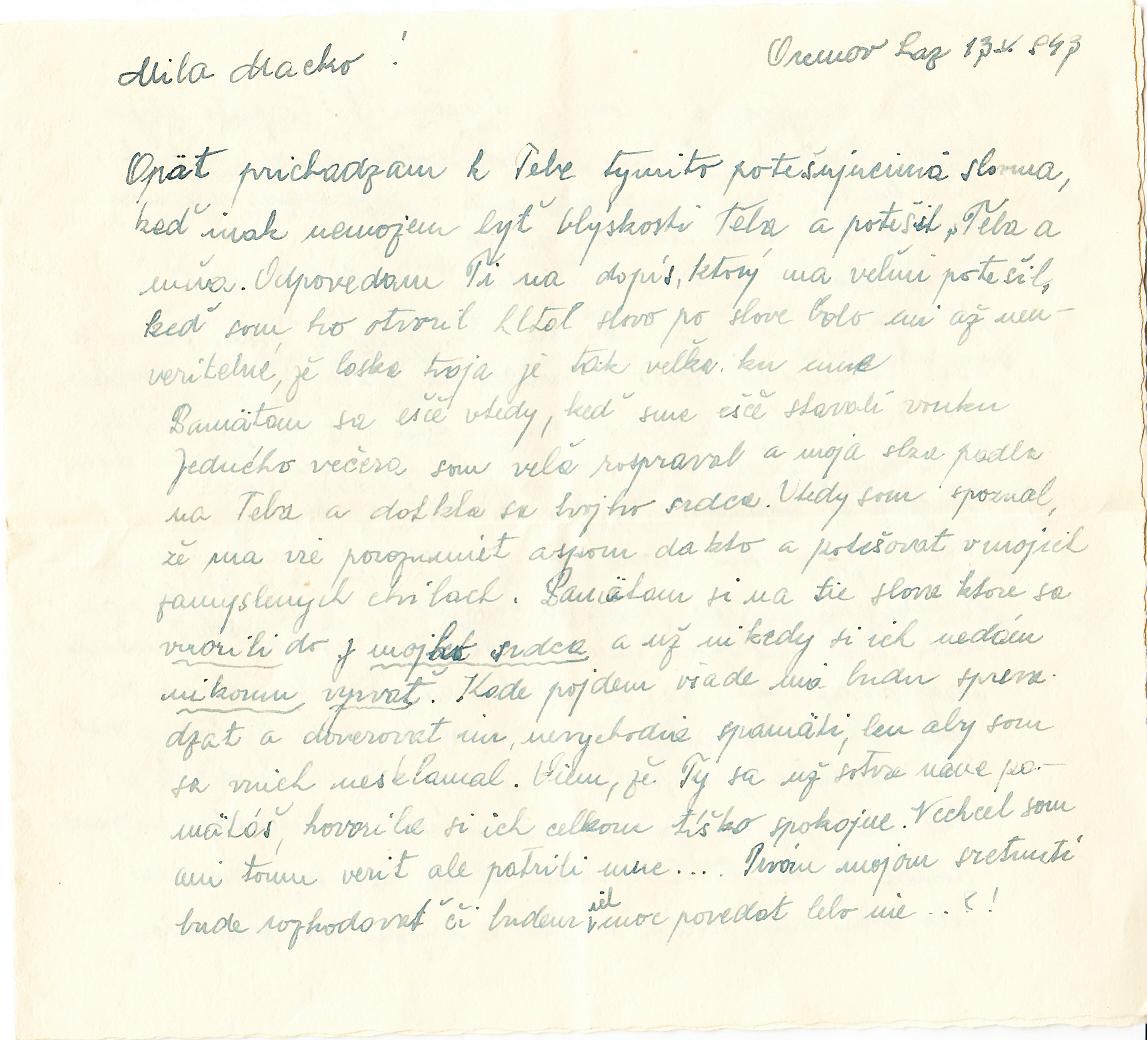 Mila Macko !
Oremov Laz 13.X 943
Opäť prichadzam k Tebe tymito potešujucima slovma,
keď inak nemojem byť blyskosti Teba a potešil „Teba a
mňa. Odpovedam Ti na dopis, ktorý ma veľmi potešil,
keď som ho otvoril hltal slovo po slove bolo mi až neu-
veritelné, že laska tvoja je tak velka. ku mne
Pamätam sa ešče vtedy, keď sme ešče stavali vonku
Jedného večera som vela rospraval a moja slza padla
na Teba a dotkla sa tvojho srdca. Vtedy som spoznal,
že ma vie porozumiet aspom dakto a potešovat v mojich
zamyslených chvilach. Pamätam si na tie slova ktore sa
vrorili do mojho srdca a už nikedy si ich nedám
nikomu vyrvať. Kade pojdem všade ma budu spreva-
dzat a doverovat im, nevychodia spamäti, len aby som
sa vnich nesklamal. Viem, že Ty sa už sotva nave pa-
mätáš, hovorila si ich celkom tiško spokojne. Nechcel som
ani tomu verit ale patrili mne.... Prvóm mojom sretnuti
bude rozhodovať či budem ich moc povedat lebo nie...?!